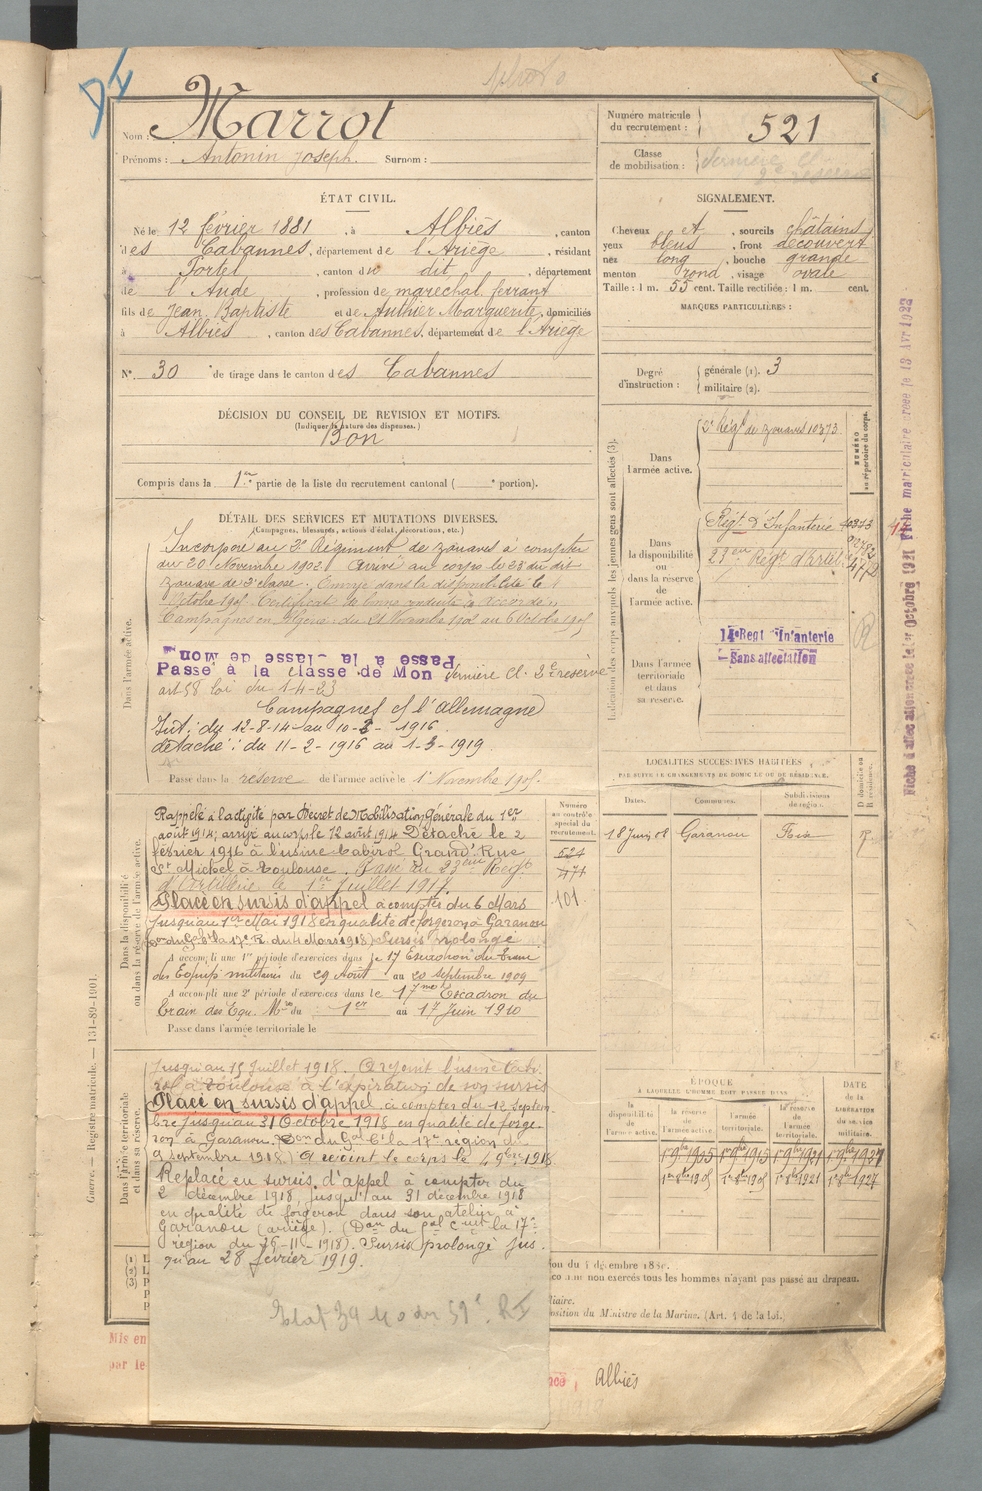 Nom : Marrot
Prénoms : Antonin Joseph. Surnom :
Numéro matricule du recrutement : 521
Classe de mobilisation : dernière Cl. 2e réserve
ÉTAT CIVIL.
Né le 12 février 1881, à Albiès, canton
des Cabannes, département de l'Ariège, résidant
à Portel, canton du dit, département
de l'Aude, profession de maréchal ferrant
fils de Jean Baptiste et de Authier Marguerite, domiciliés
à Albiès, canton des Cabannes, département de l'Ariège
N° 30 de tirage dans le canton des Cabannes
DÉCISION DU CONSEIL DE REVISION ET MOTIFS.
(Indiquer la nature des dispenses.)
Bon
Compris dans la 1re partie de la liste du recrutement cantonal ( e portion).
SIGNALEMENT.
Cheveux et, sourcils châtains
yeux bleus, front découvert
nez long, bouche grande
menton rond, visage ovale
Taille : 1 m. 55 cent. Taille rectifiée : 1 m. cent.
MARQUES PARTICULIÈRES :
Degré d'instruction : générale (1). 3
militaire (2).
DÉTAIL DES SERVICES ET MUTATIONS DIVERSES.
(Campagnes, blessures, actions d'éclat, décorations, etc.)
Dans l'armée active.
Incorporé au 2e Régiment de zouaves à compter
du 20 Novembre 1902. Arrivé au corps le 23 du dit
zouave de 2e classe. Envoyé dans la disponibilité le
Octobre 1905. Certificat de bonne conduite accordé.
Campagnes en Algérie : du 21 Novembre 1902 au 6 Octobre 1905
Passé à la classe de Mon
Passé à la classe de Mon dernière Cl. 2e réserve
art 58 loi du 1-4-23
Campagnes c/ l'Allemagne
Int : du 12-8-14 au 10-2-1916
détaché : du 11-2-1916 au 1-3-1919
Passé dans la réserve de l'armée active le 1er Novembre 1905.
Indication des corps auxquels les jeunes gens sont affectés (3).
Dans l'armée active.
2e Régt de zouaves 10373
NUMÉRO au répertoire du corps.
Dans la disponibilité ou dans la réserve de l'armée active.
Régt d'Infanterie 10373
23ème Régt d'Artie
Dans l'armée territoriale et dans sa réserve.
14e Regt Infanterie
Sans affectation
Fiche d'affectation créée le 1er Octobre 1921 Fiche matriculaire créée le 13 Avr 1922
Dans la disponibilité ou dans la réserve de l'armée active.
Rappelé à l'activité par Décret de Mobilisation Générale du 1er
août 1914; arrivé au corps le 12 août 1914 Détaché le 2
février 1916 à l'usine Cabirol Grand' Rue
St Michel à Toulouse. Passé au 23ème Regt
d'Artillerie le 1er Juillet 1917.
Placé en sursis d'appel à compter du 6 Mars
Jusqu'au 1er Mai 1918 en qualité de forgeron à Garanou
Sursis prolongé
A accompli une 1re période d'exercices dans le 17 Escadron du Train
des Equip militaires du 29 Août au 20 septembre 1909
A accompli une 2e période d'exercices dans le 17me Escadron du
Train des Equ. Mres du 1er au 17 Juin 1910
Passé dans l'armée territoriale le
Numéro au contrôle spécial du recrutement.
521
471
101.
LOCALITÉS SUCCESSIVES HABITÉES
PAR SUITE DE CHANGEMENTS DE DOMICILE OU DE RÉSIDENCE.
Dates. Communes. Subdivisions de région. D domicile ou R résidence.
18 Juin 08 Garanou Foix
Dans l'armée territoriale et dans sa réserve.
Jusqu'au 15 Juillet 1918. A rejoint l'usine Cabi-
rol à Toulouse à l'expiration de son sursis
Placé en sursis d'appel à compter du 12 Septem-
bre jusqu'au 31 Octobre 1918 en qualité de forge-
ron à Garanou. Don du Gal Ct la 17e région du
9 septembre 1918) A rejoint le corps le 4 9bre 1918
Replacé en sursis d'appel à compter du
2 décembre 1918, jusqu'au 31 décembre 1918
en qualité de forgeron dans son atelier à
Garanou (Ariège). (Don du Gal Cmt la 17e
région du 26-11-1918). Sursis prolongé jus-
qu'au 28 février 1919.
ÉPOQUE
À LAQUELLE L'HOMME DOIT PASSER DANS
la disponibilité de l'armée active. la réserve de l'armée active. l'armée territoriale. la réserve de l'armée territoriale. DATE DE LA LIBÉRATION du service militaire.
1er 9bre 1905 1er 9bre 1915 1er 9bre 1921 1er 9bre 1927
1er 8bre 1905 1er 8bre 1921 1er 8bre 1927
Guerre. — Registre matricule. — 131-89-1901.
non exercés tous les hommes n'ayant pas passé au drapeau.
position du Ministre de la Marine. (Art. 4 de la loi.)
Mis en
par le
Albiès